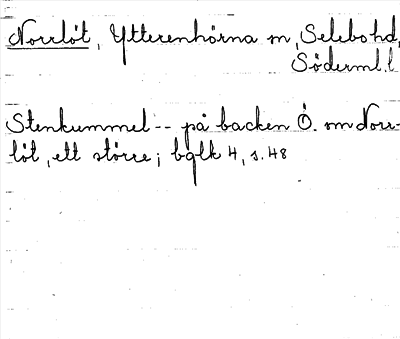 Norrlöt, Ytterenhörna sn, Selebo hd,
Söderml. l
Stenkummel -- på backen Ö. om Norr-
löt, ett större; bglk 4, s. 48